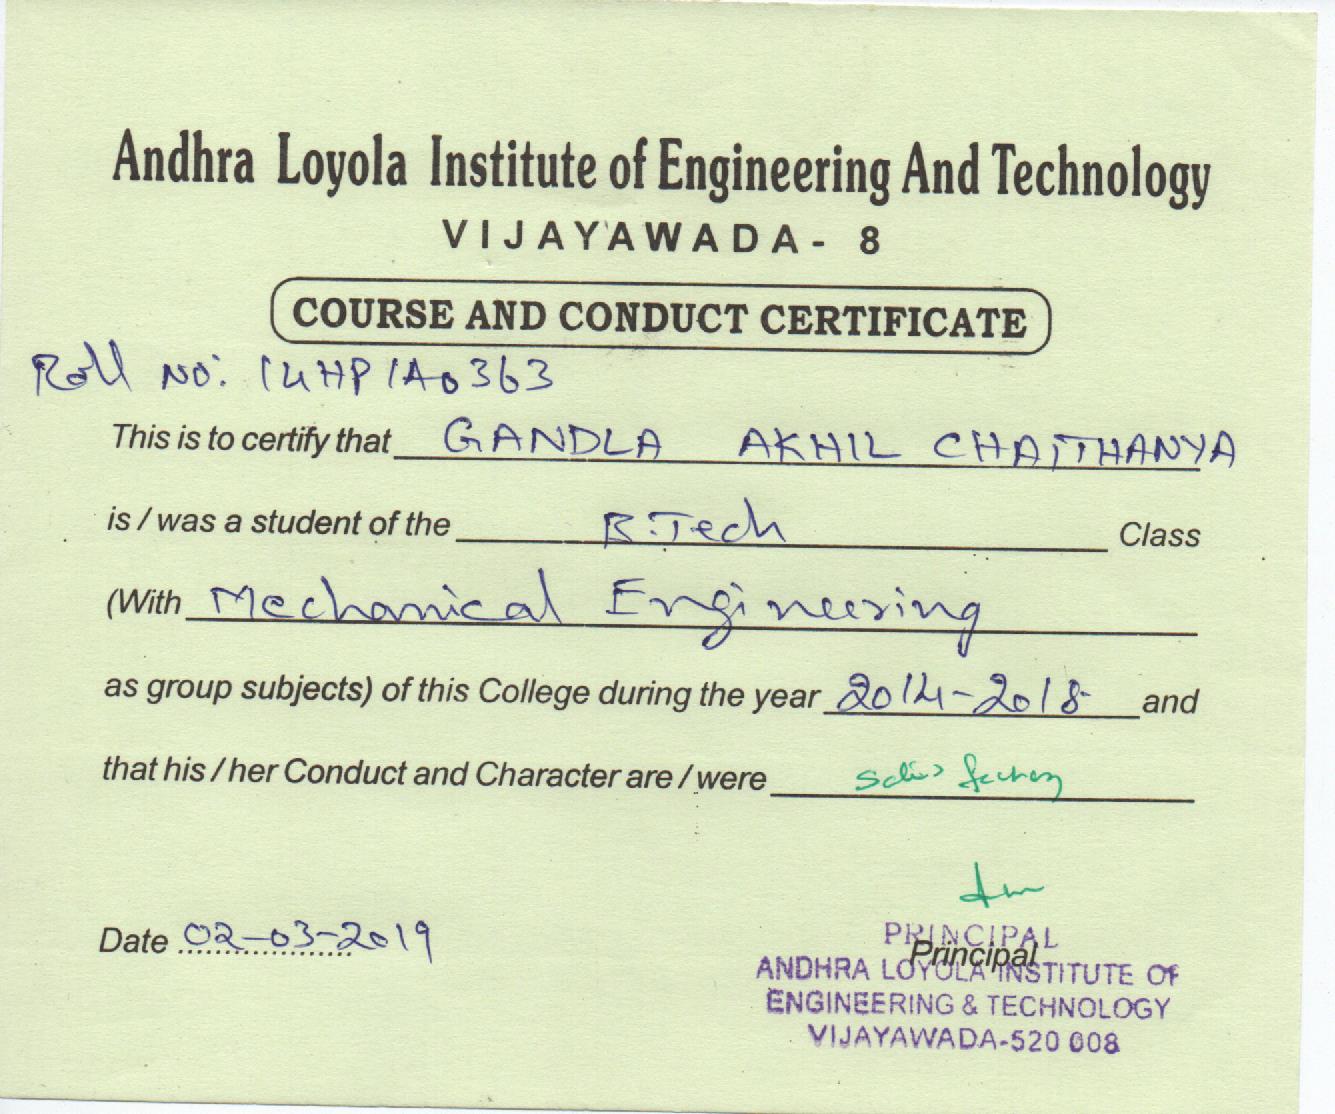 Andhra Loyola Institute of Engineering And Technology
VIJAYAWADA- 8
COURSE AND CONDUCT CERTIFICATE
Roll No: 14HP1A0363
This is to certify that GANDLA AKHIL CHAITHANYA
is / was a student of the B.Tech Class
(With Mechanical Engineering
as group subjects) of this College during the year 2014-2018 and
that his / her Conduct and Character are / were
Date 02-03-2019
PRINCIPAL
Principal
ANDHRA LOYOLA INSTITUTE OF
ENGINEERING & TECHNOLOGY
VIJAYAWADA-520 008